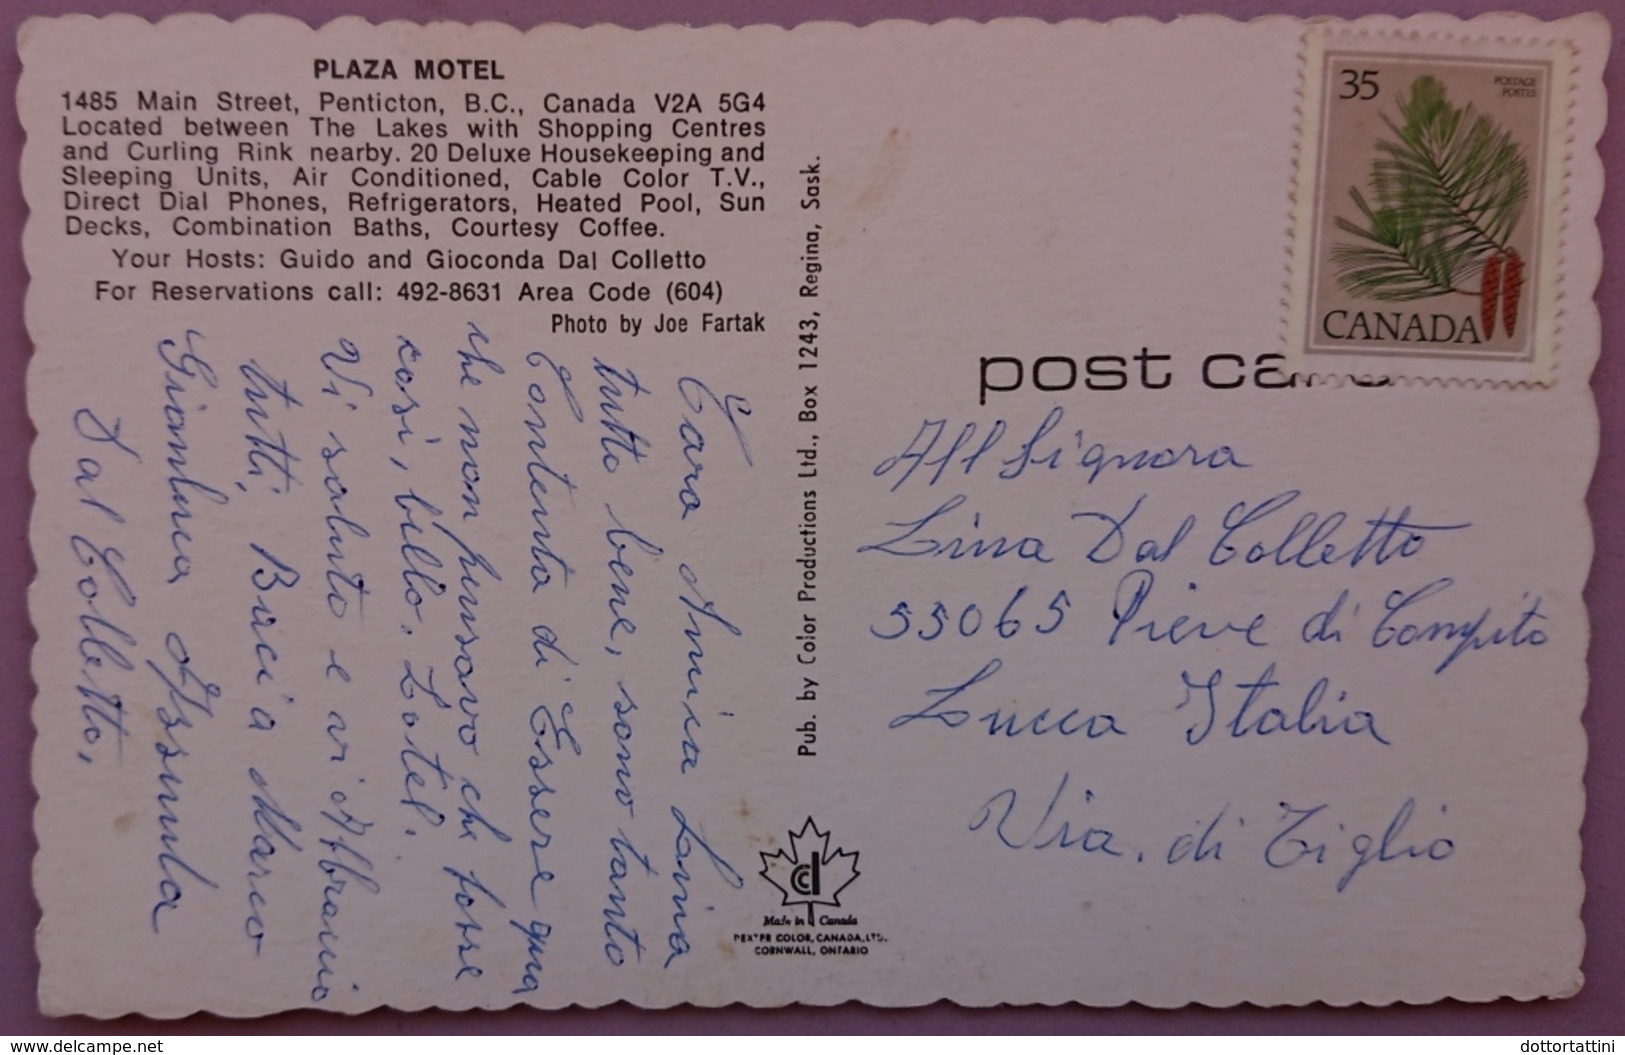 PLAZA MOTEL
1485 Main Street, Penticton, B.C., Canada V2A 5G4
Located between The Lakes with Shopping Centres
and Curling Rink nearby. 20 Deluxe Housekeeping and
Sleeping Units, Air Conditioned, Cable Color T.V.,
Direct Dial Phones, Refrigerators, Heated Pool, Sun
Decks, Combination Baths, Courtesy Coffee.
Your Hosts: Guido and Gioconda Dal Colletto
For Reservations call: 492-8631 Area Code (604)
Photo by Joe Fartak
Cara Amica Lina
tutto bene, sono tanto
Contenta di Essere qua
che non pensavo che fosse
così, bello. L'otel.
Vi saluto e vi Abbracio
tutti, Baci a Marco
Gianluca Assunta
Dal Colletto,
Pub. by Color Productions Ltd., Box 1243, Regina, Sask.
Made in Canada
DEXTER COLOR, CANADA, LTD.
CORNWALL, ONTARIO
35
POSTAGE
POSTES
CANADA
post card
All Signora
Lina Dal Colletto
55065 Pieve di Compito
Lucca Italia
Via. di Tiglio
www.delcampe.net
dottortattini